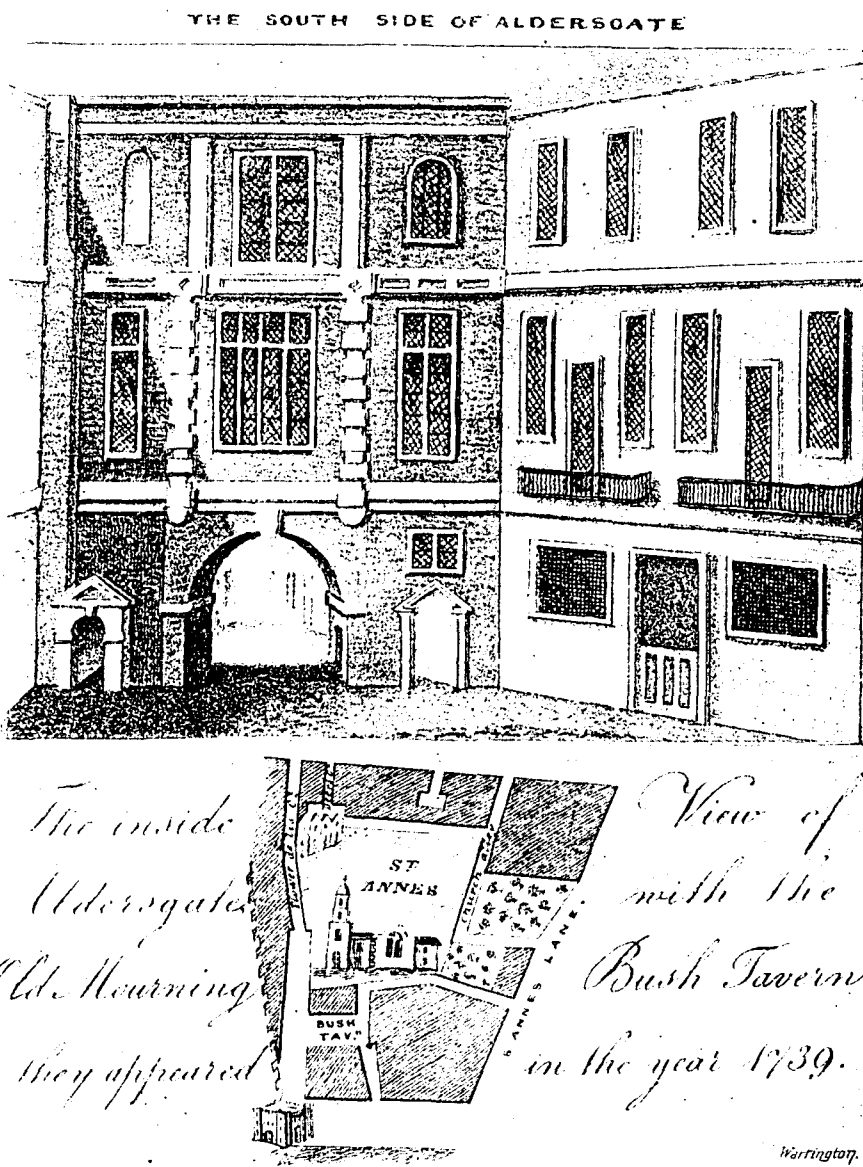 THE SOUTH SIDE OF ALDERSGATE
The inside View of
Aldersgate with the
Old Mourning Bush Tavern
they appeared in the year 1739.
ST
ANNES
CHURCH ALLEY
S ANNES LANE.
BUSH
TAV.N
Warrington.